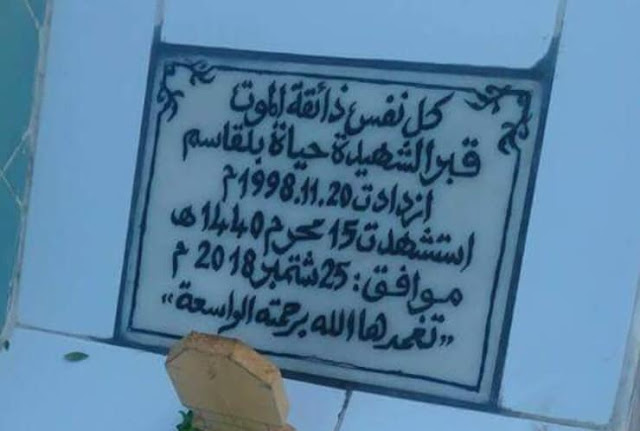 كل نفس ذائقة الموت
قبر الشهيدة حياة بلقاسم
ازدادت 1998.11.20م
استشهدت 15 محرم 1440ه
موافق: 25 شتمبر 2018 م
"تغمدها الله برحمته الواسعة"